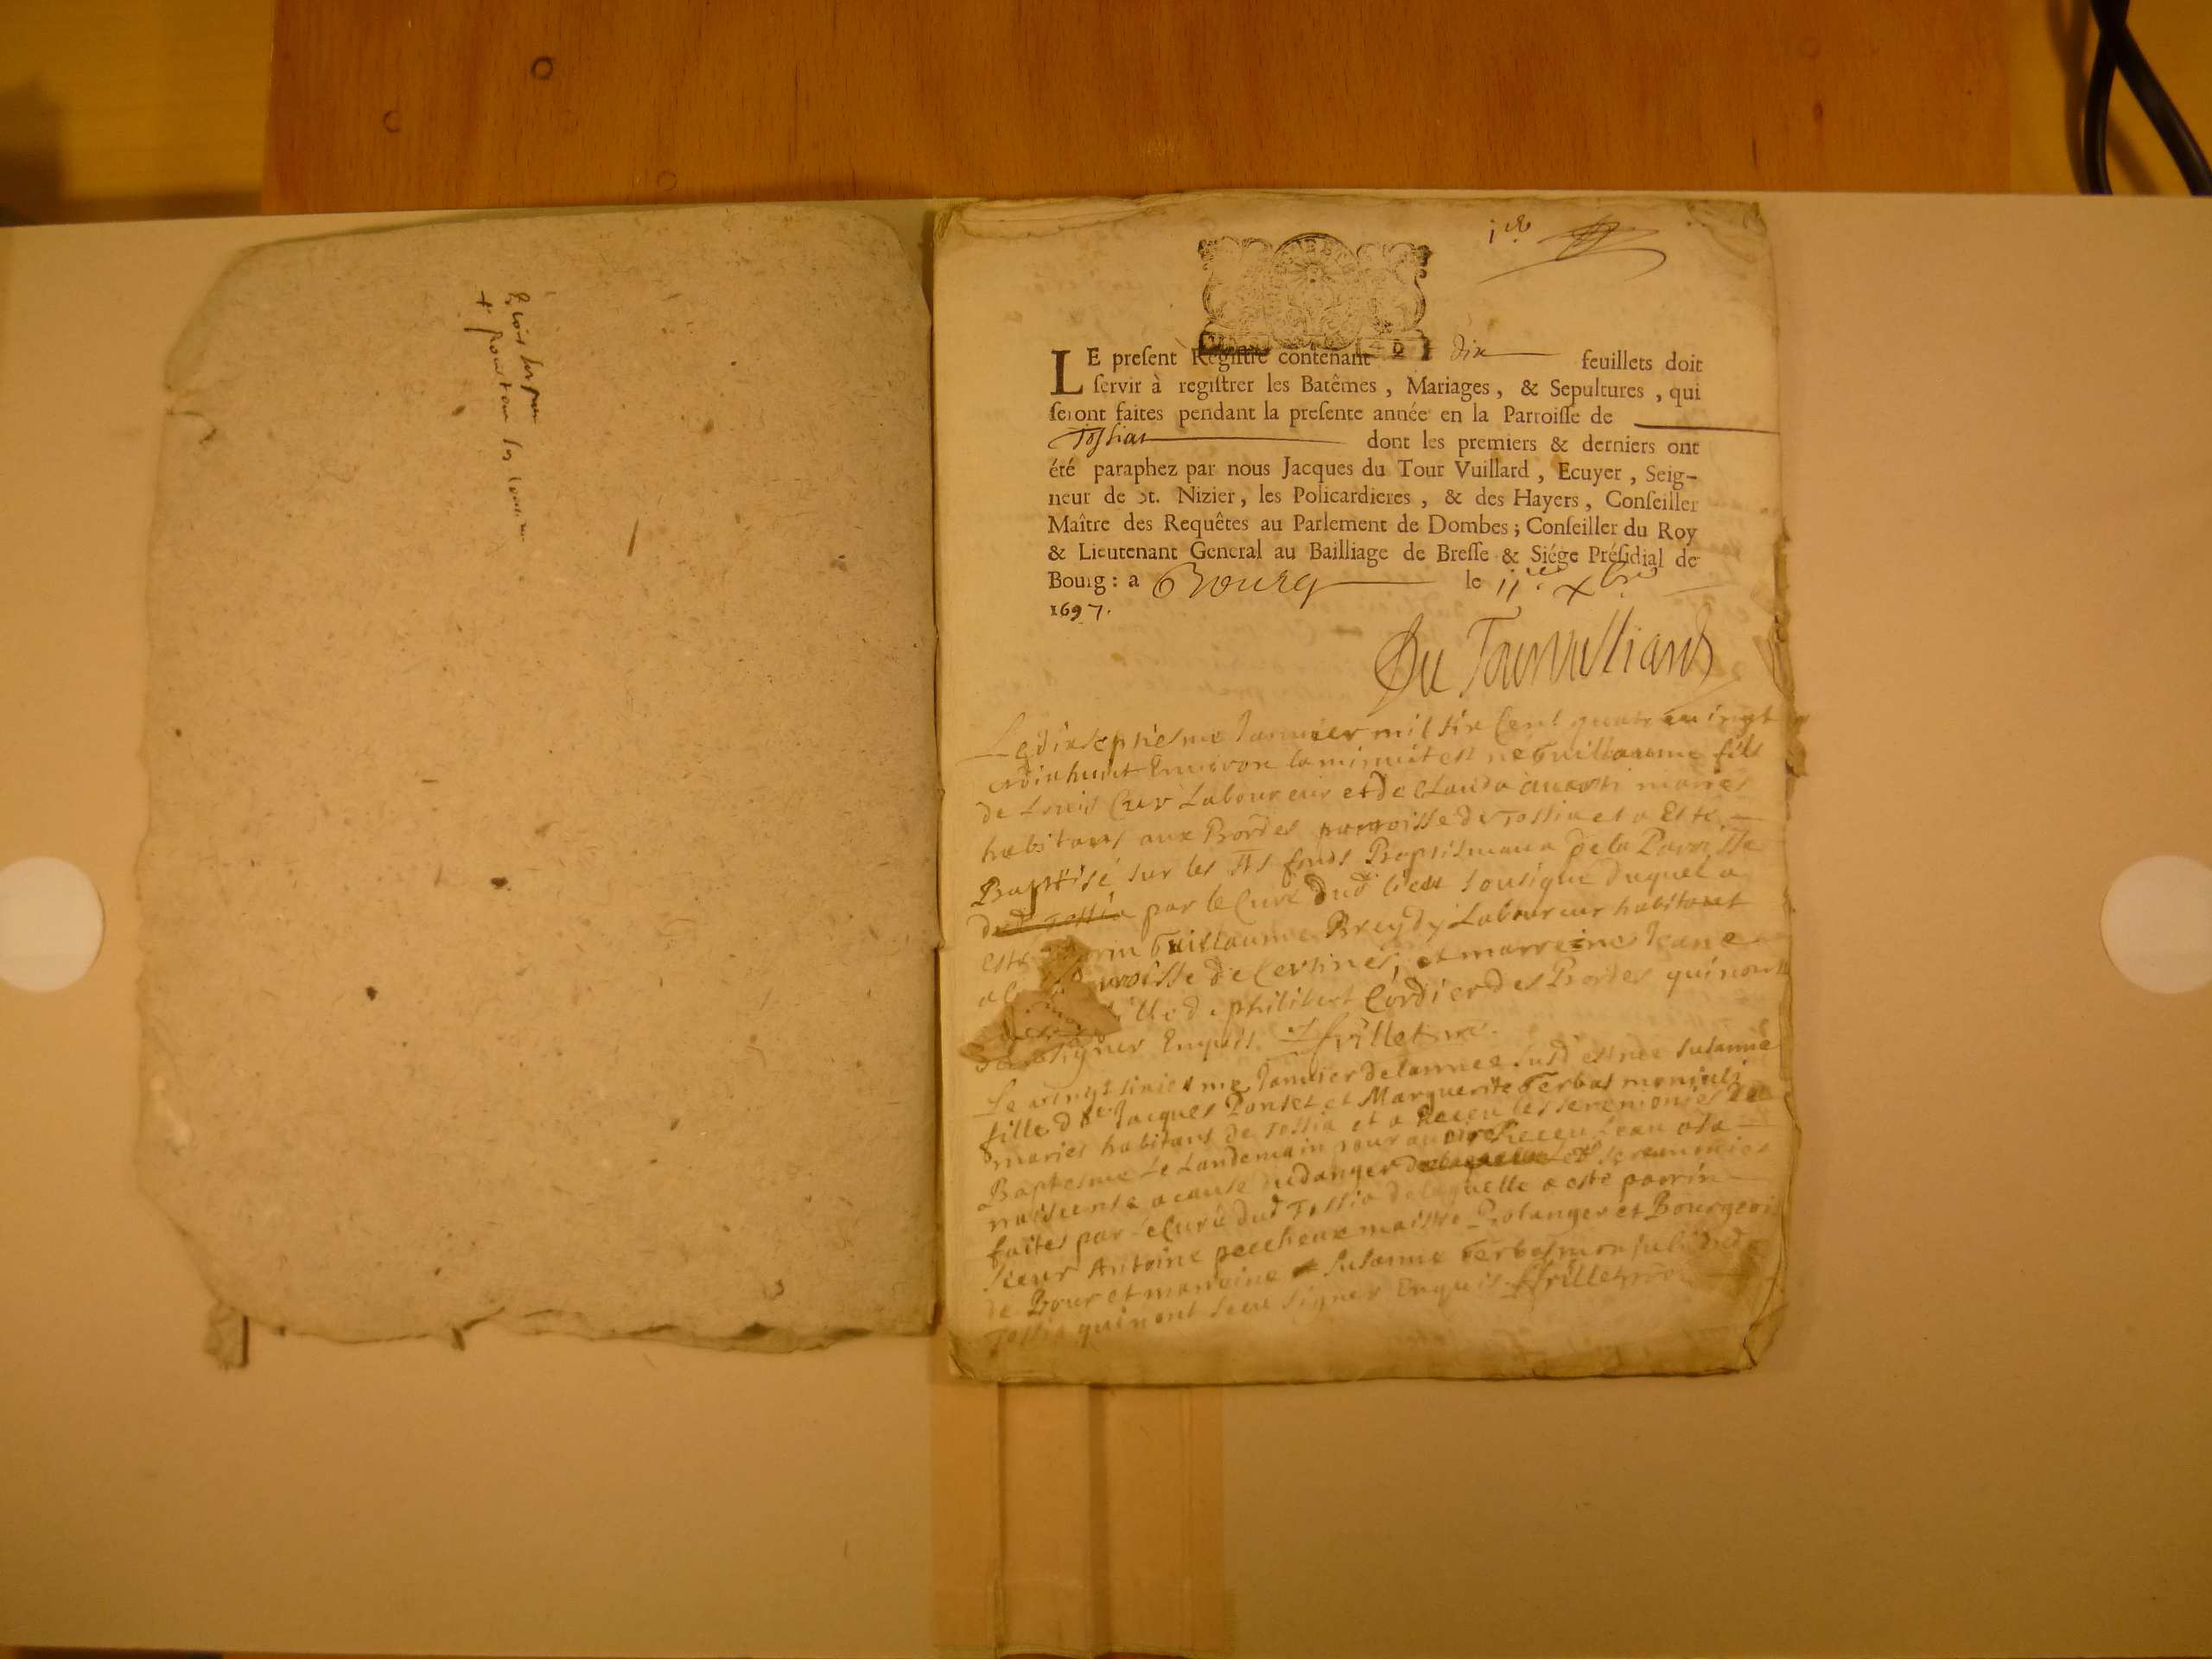 LE present Registre contenant dix feuillets doit
servir à registrer les Batêmes, Mariages, & Sepultures, qui
seront faites pendant la presente année en la Parroisse de
Tossiat dont les premiers & derniers ont
été paraphez par nous Jacques du Tour Vuillard, Ecuyer, Seig-
neur de St. Nizier, les Policardieres, & des Hayers, Conseiller
Maître des Requêtes au Parlement de Dombes; Conseiller du Roy
& Lieutenant General au Bailliage de Bresse & Siége Présidial de
Bourg: a Bourg le 11e xbre
1697.
Du Tourvulliard
Le dixseptiesme Janvier mil six Cent quatre vingt
et dixhuict Environ la minuit est né Guillaume fils
de Louis Cur Laboureur et de Clauda mariés
habitans aux Bordes parroisse de Tossia et a Esté
Baptisé sur les fonds Baptismaux de la Parroisse
par le Curé dud lieu sousigné duquel a
esté Guillaume Breydy Laboureur habitant
parroisse de Certines, et marreine Jeane
fille de philibert Cordier des Bordes qui n'ont
signer Enquis. Frillet
Le Janvier de lannee susd est née Susanne
fille de Jacques Ponset et Marguerite Gerbas
mariés habitans de Tossia et a Receu les seremonies de
Baptesme Le Landemain pour avoir Receu Leau a sa
naisence a cause du danger Les seremonies
faites par le Curé dud Tossia de laquelle a esté parrin
sieur Antoine pecheux maistre Bolanger et Bourgeois
de Bour et marreine Susanne Gerbas dud
Tossia qui nont sceu signer Enquis Frillet